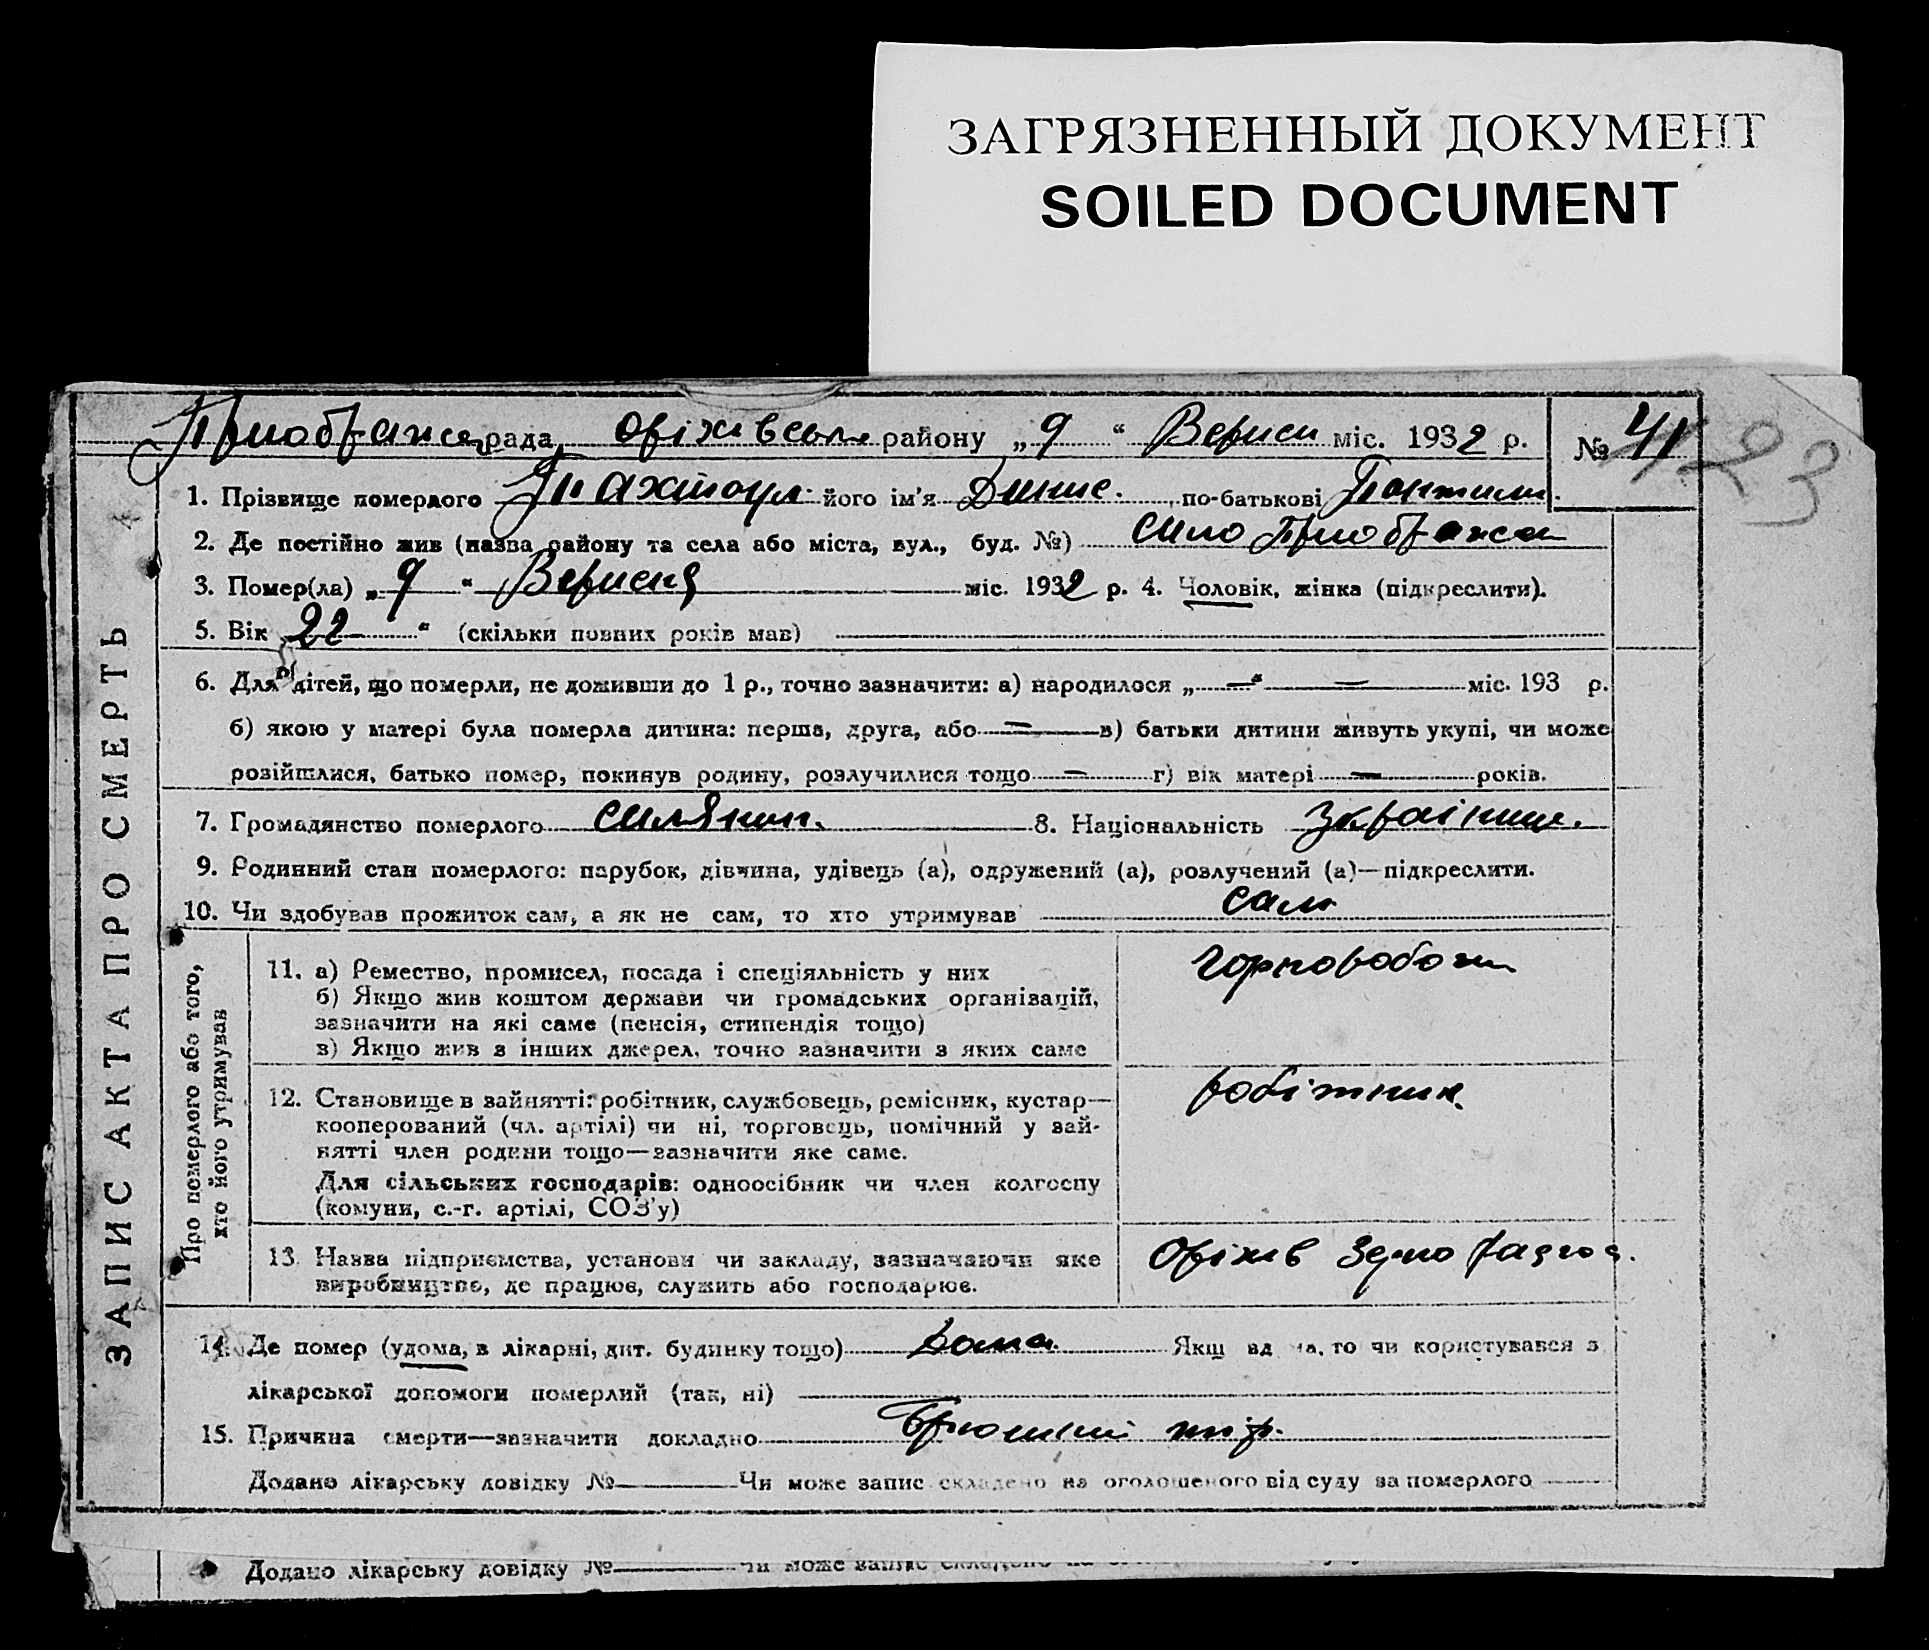 ЗАГРЯЗНЕННЫЙ ДОКУМЕНТ
SOILED DOCUMENT
рада, Оріхівськ району „9“ Вересн міс. 1932 р. № 41
423
1. Прізвище померлого його ім'я Динис. по-батькові
2. Де постійно жив (назва району та села або міста, вул., буд. №) село Приображен
3. Помер(ла) „9“ Вересня міс. 1932 р. 4. Чоловік, жінка (підкреслити).
5. Вік 22 “ (скільки повних років мав)
6. Для дітей, що померли, не доживши до 1 р., точно зазначити: а) народилося „—“ — міс. 193 р.
б) якою у матері була померла дитина: перша, друга, або — в) батьки дитини живуть укупі, чи може
розійшлися, батько помер, покинув родину, розлучилися тощо — г) вік матері — років.
7. Громадянство померлого силянин. 8. Національність
9. Родинний стан померлого: парубок, дівчина, удівець (а), одружений (а), розлучений (а)—підкреслити.
10. Чи здобував прожиток сам, а як не сам, то хто утримував сам
ЗАПИС АКТА ПРО СМЕРТЬ
Про померлого або того,
хто його утримував
11. а) Ремество, промисел, посада і спеціяльність у них
б) Якщо жив коштом держави чи громадських організацій,
зазначити на які саме (пенсія, стипендія тощо)
в) Якщо жив з інших джерел, точно зазначити з яких саме
чорноробоч
12. Становище в зайнятті: робітник, службовець, ремісник, кустар—
кооперований (чл. артілі) чи ні, торговець, помічний у зай-
нятті член родини тощо—зазначити яке саме.
Для сільських господарів: одноосібник чи член колгоспу
(комуни, с.-г. артілі, СОЗ'у)
робітник.
13. Назва підприємства, установи чи закладу, зазначаючи яке
виробництво, де працює, служить або господарює.
Оріхів
14. Де помер (удома, в лікарні, дит. будинку тощо) Дома. Якщ вд ма, то чи користувався з
лікарської допомоги померлий (так, ні)
15. Причина смерти—зазначити докладно Брюшний тиф.
Додано лікарську довідку № Чи може запис складено на оголошеного від суду за померлого
Додано лікарську довідку № чи може запис складено на